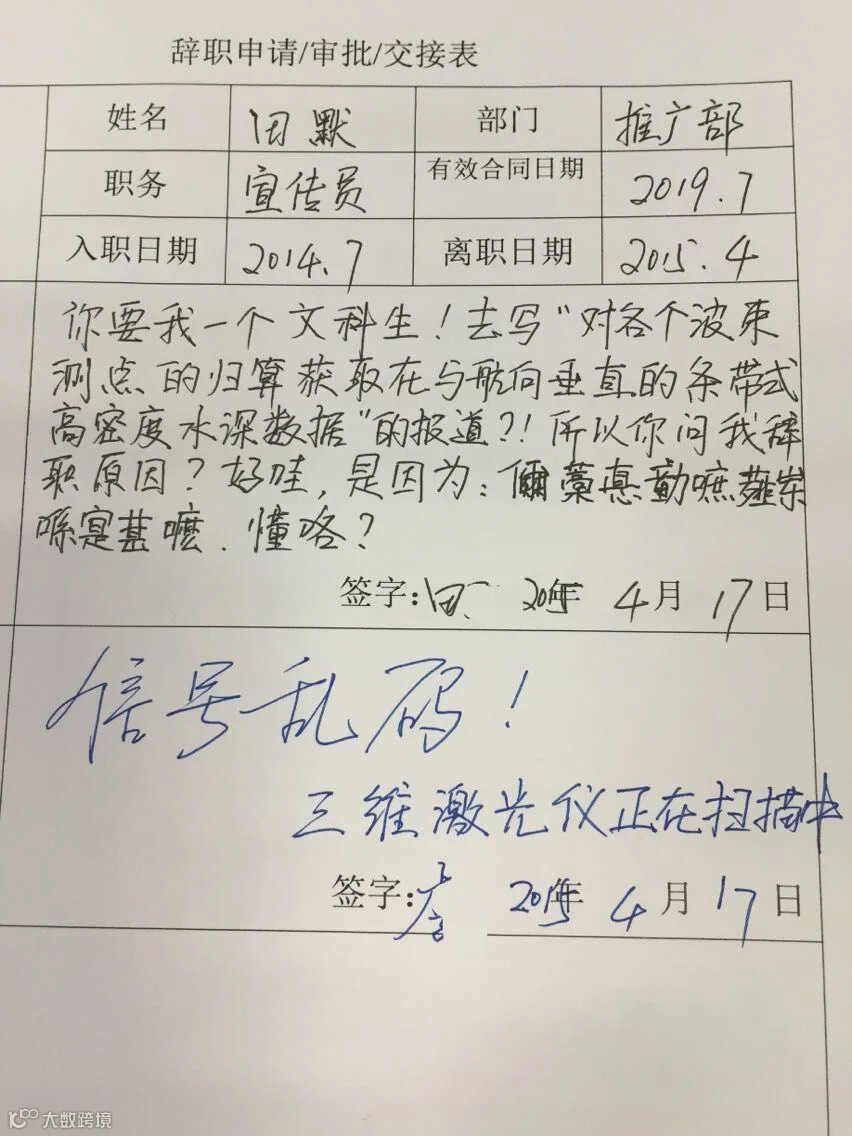 辞职申请/审批/交接表
姓名 田默 部门 推广部
职务 宣传员 有效合同日期 2019.7
入职日期 2014.7 离职日期 2015.4
你要我一个文科生！去写“对各个波束
测点的归算获取在与航向垂直的条带式
高密度水深数据”的报道？！所以你问我辞
职原因？好哇，是因为：
嚒．懂咯？
签字： 2015年 4月 17日
信号乱码！
三维激光仪正在扫描中
签字： 2015年 4月 17日
大数跨境